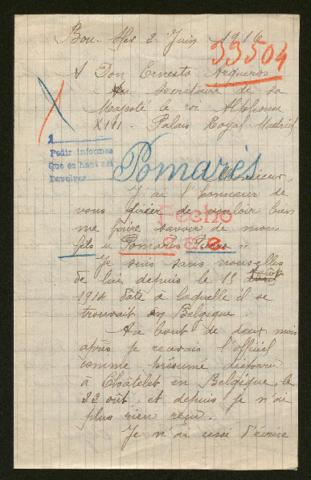 Bou. le 2 Juin 1916
33504
A Don Ernesto
Secrétaire de Sa
Majesté le roi Alphonse
XIII. Palais Royal Madrid
1
Pedir informes
Que en hará así
Devolver
Pomarès
Monsieur
J'ai l'honneur de
vous prier de vouloir bien
me faire savoir de mon
Fecho
fils Pomarès
Je suis sans nouvelles
de lui depuis le 15
1914 date à laquelle il se
trouvait en Belgique
Au bout de deux mois
après je recevais l'officiel
comme présumé disparu
à Châtelet en Belgique le
22 août et depuis je n'ai
plus rien reçu.
Je n'ai cessé d'écrire